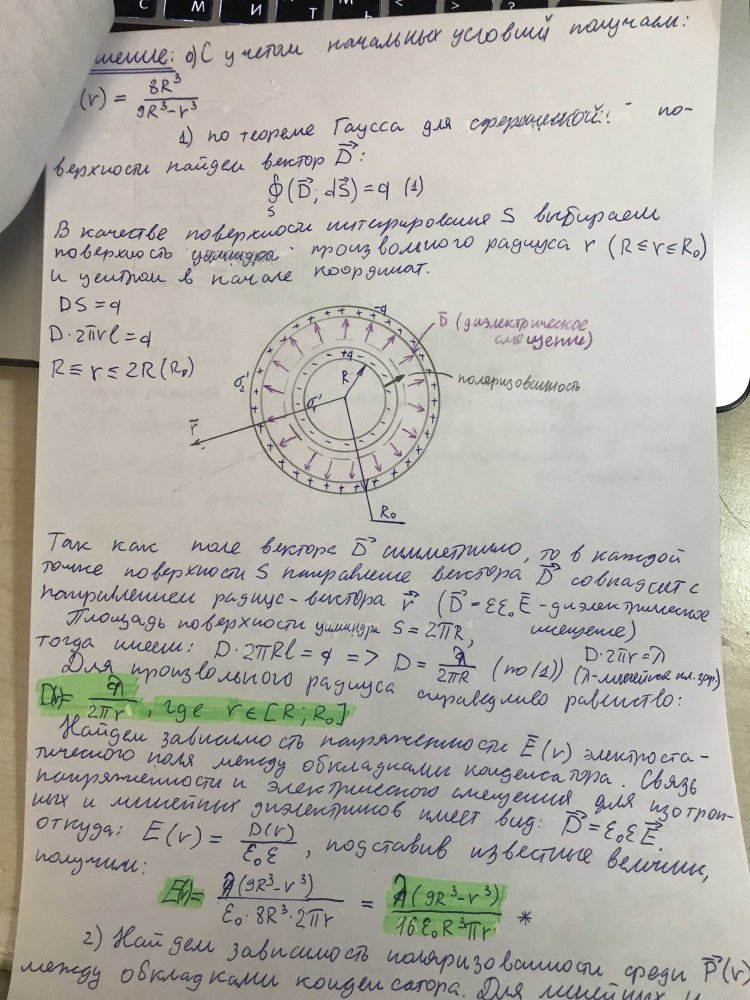 С И М
шение: 0) С учетом начальных условий получаем:
(r) = 8R³ / 9R³-r³
1) по теореме Гаусса для сферической по-
верхности найдем вектор D⃗:
∮S (D⃗; dS⃗) = q (1)
В качестве поверхности интегрирования S выбираем
поверхность цилиндра произвольного радиуса r (R ≤ r ≤ R₀)
и центром в начале координат.
DS = q
D·2πrl = q
R ≤ r ≤ 2R (R₀)
-q
D̄ (диэлектрическое
смещение)
+q
R
поляризованность.
σ₂'
σ₁'
r̄
R₀
Так как поле вектора D⃗ симметрично, то в каждой
точке поверхности S направление вектора D⃗ совпадает с
направлением радиус-вектора r⃗ (D⃗ = εε₀E⃗ - диэлектрическое
смещение)
Площадь поверхности цилиндра S = 2πR,
тогда имеем: D·2πRl = q => D = λ / 2πR (по (1))
D·2πr = λ
(λ-линейная пл. зар.)
Для произвольного радиуса справедливо равенство:
D(r) = λ / 2πr, где r ∈ [R; R₀]
Найдем зависимость напряженности E̅(r) электроста-
тического поля между обкладками конденсатора. Связь
напряженности и электрического смещения для изотроп-
ных и линейных диэлектриков имеет вид: D⃗ = ε₀εE⃗
откуда: E(r) = D(r) / ε₀ε, подставив известные величин,
получим:
E(r) = λ(9R³-r³) / ε₀·8R³·2πr = λ(9R³-r³) / 16ε₀R³πr *
2) Найдем зависимость поляризованности среды P⃗(r)
между обкладками конденсатора. Для линейных и